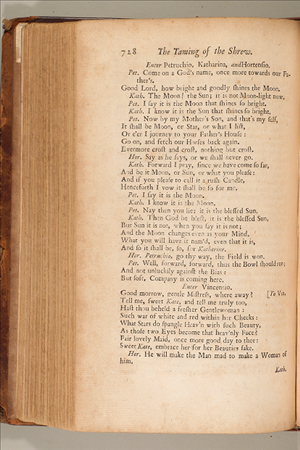 728 The Taming of the Shrew.
Enter Petruchio, Katharina, and Hortensio.
Pet. Come on a God's name, once more towards our Fa-
ther's.
Good Lord, how bright and goodly shines the Moon.
Kath. The Moon! the Sun; it is not Moon-light now.
Pet. I say it is the Moon that shines so bright.
Kath. I know it is the Sun that shines so bright.
Pet. Now by my Mother's Son, and that's my self,
It shall be Moon, or Star, or what I list,
Or e'er I journey to your Father's House:
Go on, and fetch our Horses back again.
Evermore crost and crost, nothing but crost.
Hor. Say as he says, or we shall never go.
Kath. Forward I pray, since we have come so far,
And be it Moon, or Sun, or what you please:
And if you please to call it a rush Candle,
Henceforth I vow it shall be so for me.
Pet. I say it is the Moon.
Kath. I know it is the Moon.
Pet. Nay then you lie; it is the blessed Sun.
Kath. Then God be blest, it is the blessed Sun,
But Sun it is not, when you say it is not;
And the Moon changes even as your Mind.
What you will have it nam'd, even that it is,
And so it shall be so, for Katharine.
Hor. Petruchio, go thy way, the Field is won.
Pet. Well, forward, forward, thus the Bowl should run;
And not unluckily against the Bias:
But soft, Company is coming here.
Enter Vincentio.
Good morrow, gentle Mistress, where away? [To Vin.
Tell me, sweet Kate, and tell me truly too,
Hast thou beheld a fresher Gentlewoman:
Such war of white and red within her Cheeks:
What Stars do spangle Heav'n with such Beauty,
As those two Eyes become that heav'nly Face?
Fair lovely Maid, once more good day to thee:
Sweet Kate, embrace her for her Beauties sake.
Hor. He will make the Man mad to make a Woman of
him.
Kath.